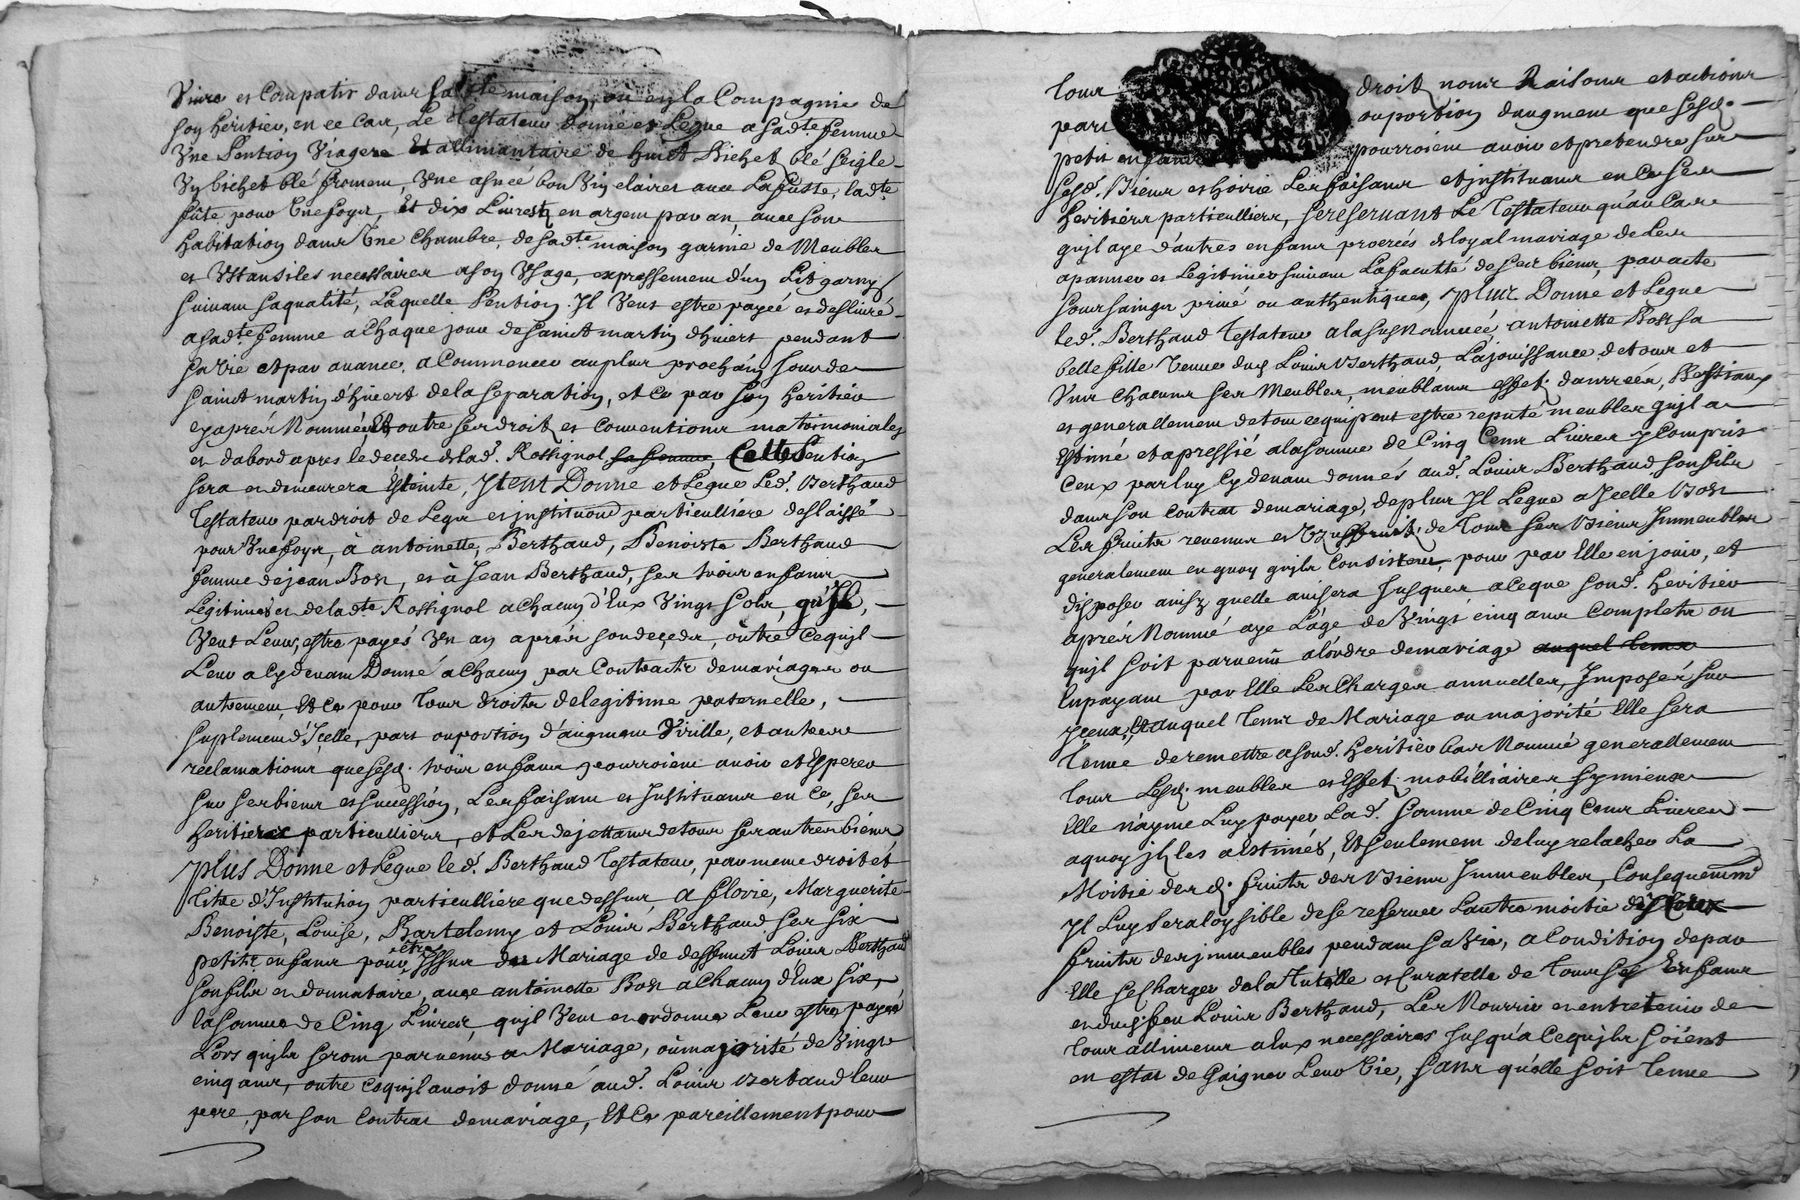 Vivre et Compatir dans sadte maison, ou en la Compagnie de
son heritier, en ce Cas, Le Testateur donne et Legue a sadte femme
Vne Pention Viagere Et allimantaire de huict Bichet blé seigle
Vn bichet blé froment, Vne asnée bon Vin clairet auec La fuste, ladte
fûte pour Vne foys, Et dix Liures en argent par an, auec son
habitation dans Vne Chambre de sadte maison garnie de Meubles
et Vstansiles necessaires a son Vsage, expressement d'un Lit garny
suiuant sa qualité, Laquelle Pention Il Veut estre payée et desliuré
a sadte femme a Chaque jour de sainct martin d'hiuert pendant
sa vie et par auance, a Commencer au plus prochain jour de
sainct martin d'hiuert de la separation, et Ce par son heritier
cy aprés Nommé, Et outre ses droit et conuentions matrimoniales
et d'abord apres le decedz de lad. Rossignol sa femme, Cette Pention
sera et demeurera Esteinte, Item Donne et Legue Led. Berthaud
Testateur par droit de Legs et institution particulliére deslaissé
pour Vne foys, à antoinette, Berthaud, Benoiste Berthaud
femme de jean Bost, et à Jean Berthaud, ses trois enfans
Legitimes et de ladte Rossignol a chacun d'Eux Vingt sols, qu'Il
Veut Leur, estre payés Vn an aprés son deçeds, outre Ce qu'jl
Leur a Cy deuant Donné a chacun par Contracts de mariages ou
autrement, Et Ce pour Tous droits de legitime paternelle,
suplement d'Icelle, part ou portion d'augment Virille, et autres
reclamations que sesd. trois enfans pourroient auoir et Esperer
sur ses biens et succession, Les faisant et Instituant en Ce, ses
heritiers particulliers, et Les dejettans de tous ses autres biens
plus Donne et Legue le d. Berthaud Testateur, par meme droit et
titre d'Institution particulliere que dessus, a florie, Marguerite
Benoiste, Louise, Bartelemy et Louis Berthaud ses six
petits enfans pour être Issus du Mariage de deffunct Louis Berthaud
son fils et donnataire, auec antoinette Bost a Chacun d'Eux six,
la somme de Cinq Liures, qu'jl Veut et ordonne Leur estre payée
Lors qu'jls seront paruenus a Mariage, où majorité de Vingt
cinq ans, outre Ce qu'jl auoit donné aud. Louis Bertaud leur
pere, par son contrat de mariage, Et Ce pareillement pour
Tous droit, noms Raisons et actions
part ou portion d'augment que sesd.
petit enfans pourroient auoir et pretendre sur
sesd. Biens et hoirie Les faisant et instituant en Ce ses
heritiers particulliers, se reseruant Le Testateur qu'au Cas
qu'jl aye d'autres enfans procréés de loyal mariage de Les
apanner et Legitimer suiuant La faculté de ses biens, par acte
sous saings priué ou authentiques, plus Donne et Legue
led. Berthaud Testateur a la susnommée antoinette Bost sa
belle fille Veuue dud. Louis Berthaud, La jouissance de tous et
Vns chacuns ses Meubles, meublans effet, danrrées, Bestiaux
et generallement de tout ce qui peut estre reputé meubles qu'jl a
Estimé et apressié a la somme de Cinq Cens Liures y Compris
Ceux par luy Cy deuant donnés aud. Louis Berthaud son fils
dans son contrat de mariage, de plus Il Legue a Icelle Bost
Les fruits reuenus et Vzuffruit de Tous ses Biens Immeubles
generalement en quoy qu'jls Consistent, pour par Elle en jouir, et
disposer ainsy quelle auisera Jusques a ce que sond. heritier
aprés Nommé aye L'age de Vingt cinq ans complets ou
qu'jl soit paruenu a l'ordre de mariage auquel temps
En payant par Elle Les Charges annuelles, Imposés sur
yceux, Et auquel temps de Mariage ou majorité Elle sera
Tenue de remettre a sond. heritier bas Nommé generallement
Tous Lesd. meubles et Effet mobilliaires sy mieux
Elle n'ayme Luy payer Lad. somme de Cinq Cens Liures
a quoy jl les a estimés, Et seulement de luy relacher La
Moitié desd. fruits des Biens Immeubles, Consequemmt
Il Luy sera loysible de se reseruer L'autre moitié des
fruits des jmmeubles pendant sa Vie, a Condition de par
Elle se Charger de la Tutelle et curatelle de Tous ses Enfans
et dud. feu Louis Berthaud, Les Nourrir et entretenir de
Tous allimens a Eux necessaires Jusqu'a ce qu'jls soient
en estat de Gaigner Leur Vie, sans qu'elle soit Tenue